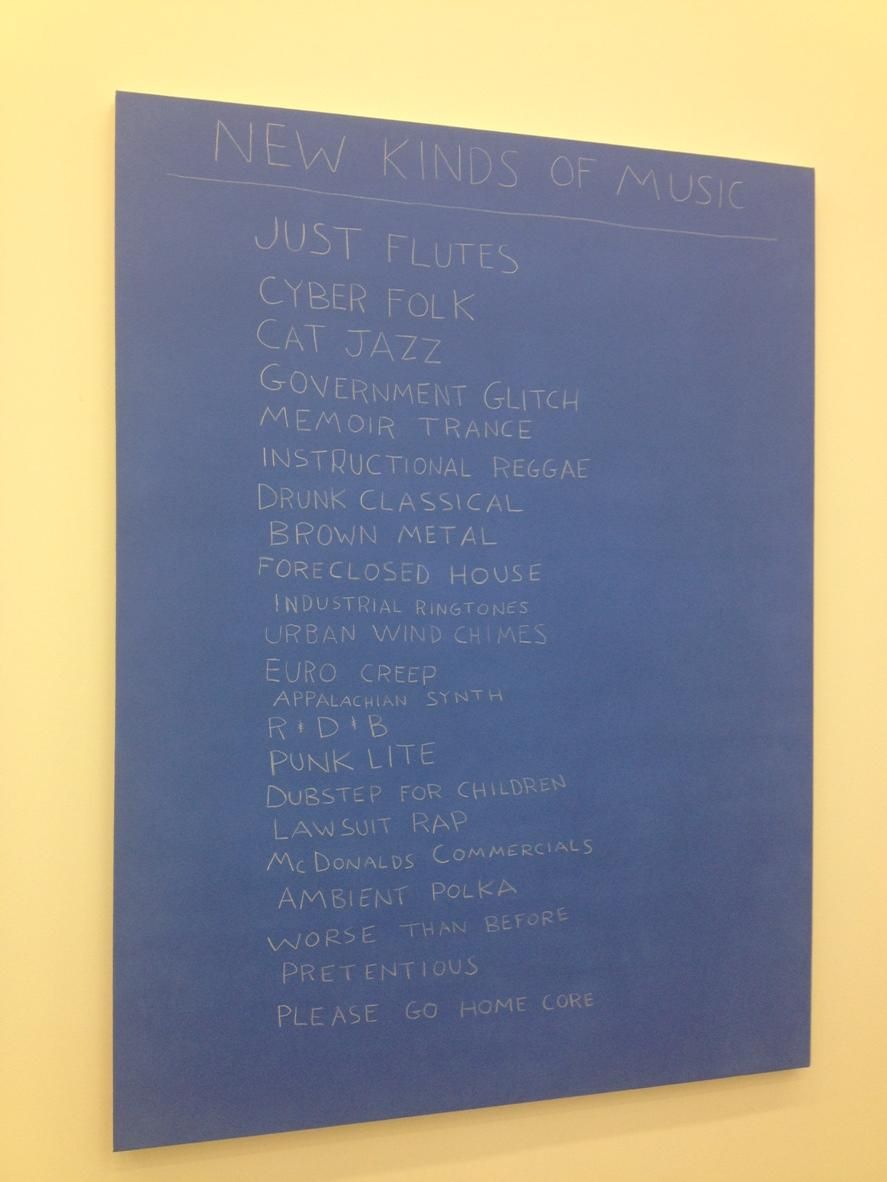 NEW KINDS OF MUSIC
JUST FLUTES
CYBER FOLK
CAT JAZZ
GOVERNMENT GLITCH
MEMOIR TRANCE
INSTRUCTIONAL REGGAE
DRUNK CLASSICAL
BROWN METAL
FORECLOSED HOUSE
INDUSTRIAL RINGTONES
URBAN WIND CHIMES
EURO CREEP
APPALACHIAN SYNTH
R & D & B
PUNK LITE
DUBSTEP FOR CHILDREN
LAWSUIT RAP
McDONALDS COMMERCIALS
AMBIENT POLKA
WORSE THAN BEFORE
PRETENTIOUS
PLEASE GO HOME CORE